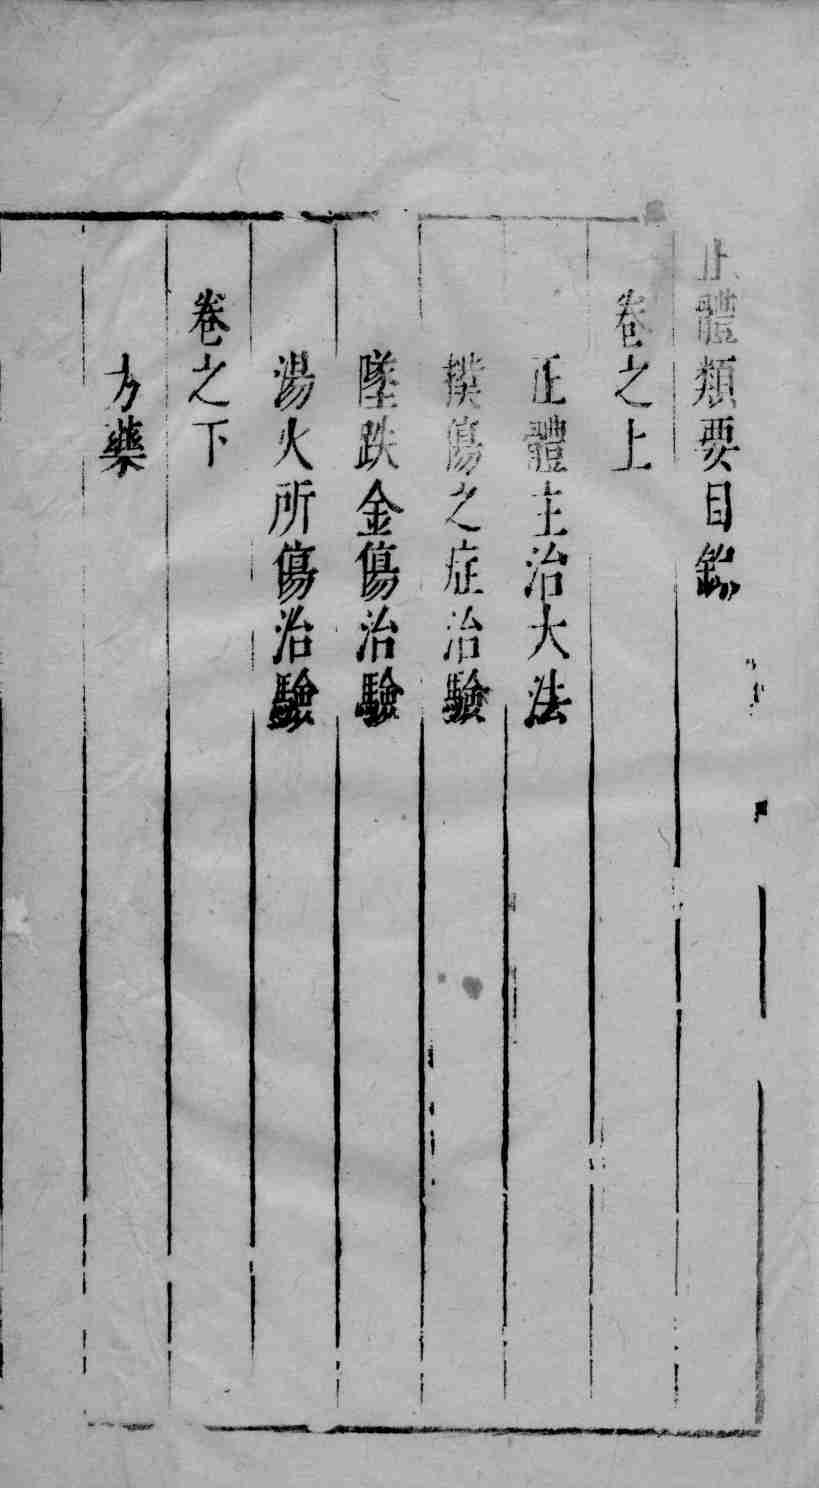 正體類要目錄
卷之上
正體主治大法
撲傷之症治驗
墜跌金傷治驗
湯火所傷治驗
卷之下
方藥